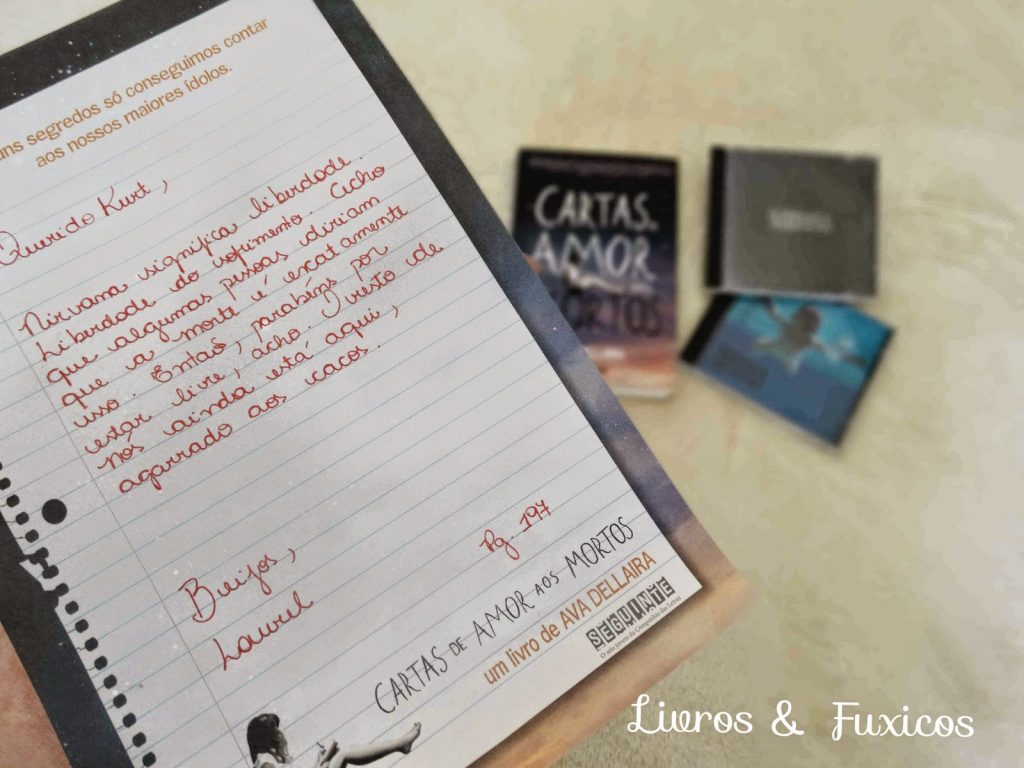 uns segredos só conseguimos contar
aos nossos maiores ídolos.
Querido Kurt,
Nirvana significa liberdade.
Liberdade do sofrimento. Acho
que algumas pessoas diriam
que a morte é exatamente
isso. Então, parabéns por
estar livre, acho. O resto de
nós ainda está aqui,
agarrado aos cacos.
Beijos,
Laurel
Pg. 197
CARTAS DE AMOR AOS MORTOS
um livro de AVA DELLAIRA
SEGUINTE
O selo jovem da Companhia das Letras
CARTAS DE
AMOR
MORTOS
Livros & Fuxicos